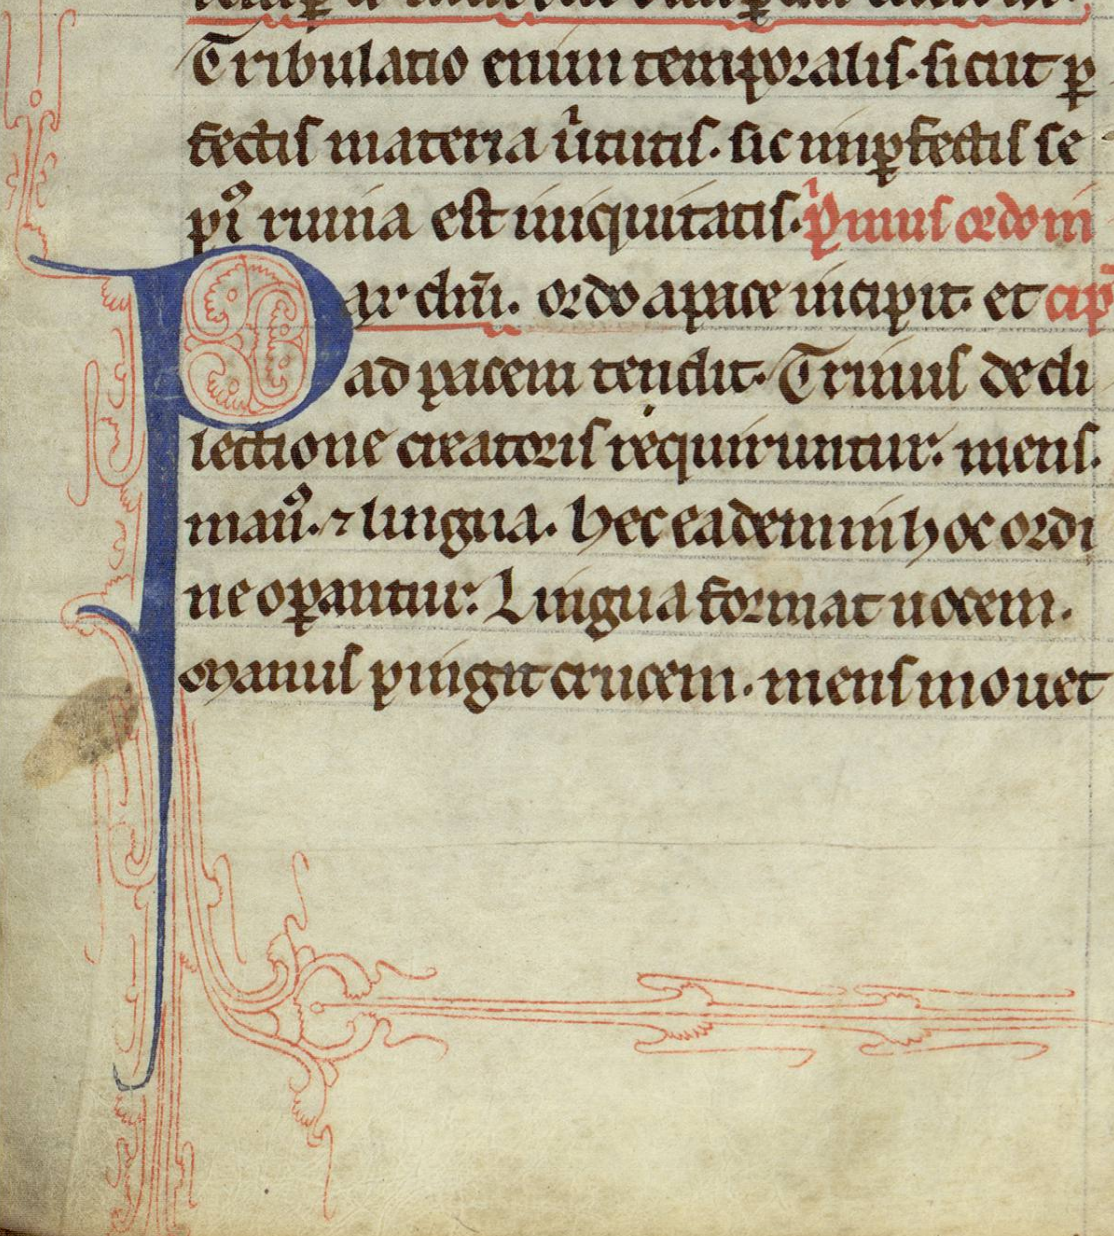 Tribulatio enim temporalis. sicut ꝑ
fectis materia uͥtutis. sic imꝑfectis se
pꝰi ruina est iniquitatis. pͥmus ordo in
Pax chͬi. ordo a pace incipit et cip̄
ad pacem tendit. Trinus de di
lectione creatoris requiruntur. mens.
manꝰ. ⁊ lingua. hec eadem in hoc ordi
ne oꝑantur. Lingua format uocem.
manus pingit crucem. mens mouet